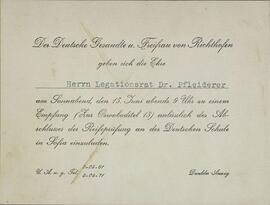 Der Deutsche Gesandte u. Freifrau von Richthofen
geben sich die Ehre
Herrn Legationsrat Dr. Pfleiderer
am Sonnabend, den 13. Juni abends 9 Uhr zu einem
Empfang (Zar Oswoboditel 13) anlässlich des Ab-
schlusses der Reifeprüfung an der Deutschen Schule
in Sofia einzuladen.
U. A. w. g. Tel.
Dunkler Anzug